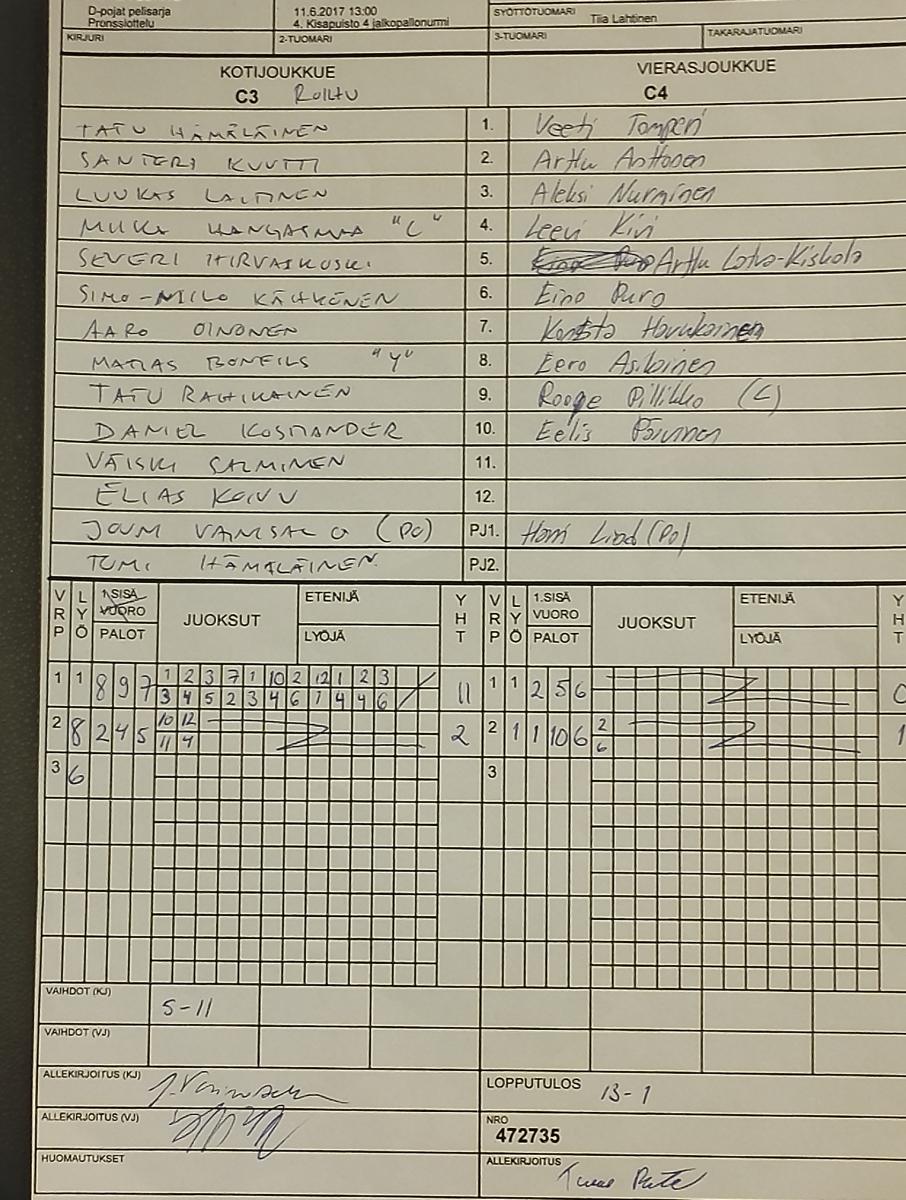 D-pojat pelisarja 11.6.2017 13:00 SYÖTTÖTUOMARI Tiia Lahtinen
Pronssiottelu 4. Kisapuisto 4 jalkopallonurmi
KIRJURI 2-TUOMARI 3-TUOMARI TAKARAJATUOMARI
KOTIJOUKKUE VIERASJOUKKUE
C3 C4
TATU HÄMÄLÄINEN 1. Veeti Tomperi
SANTERI KUUTTI 2. Arttu Anttonen
LUUKAS LAITINEN 3. Aleksi Nurminen
MIIKA KANGASMAA "C" 4. Leevi Kivi
SEVERI HIRVASKOSKI 5. Arttu Latva-Kiskola
SIMO-NIILO KÄHKÖNEN 6. Eino Puro
AARO OINONEN 7. Konsta Havukainen
MATIAS BONFILS "Y" 8. Eero Asikainen
TATU RAHIKAINEN 9. Rooge Pillikko (C)
DANIEL KOSMANDER 10. Eelis
SALMINEN 11.
ELIAS KOIVU 12.
(PO) PJ1. Harri Lind (PO)
TOMI HÄMÄLÄINEN PJ2.
VRP LYÖ 1.SISÄ VUORO PALOT JUOKSUT ETENIJÄ LYÖJÄ YHT VRP LYÖ 1.SISÄ VUORO PALOT JUOKSUT ETENIJÄ LYÖJÄ YHT
1 1 8 9 7 1 2 3 7 1 10 2 12 1 2 3 11 1 1 2 5 6 0
3 4 5 2 3 4 6 1 4 4 6
2 8 2 4 5 10 12 2 2 1 1 10 6 2 1
11 4 6
3 6 3
VAIHDOT (KJ) 5-11
VAIHDOT (VJ)
ALLEKIRJOITUS (KJ) LOPPUTULOS 13-1
ALLEKIRJOITUS (VJ) NRO 472735
HUOMAUTUKSET ALLEKIRJOITUS